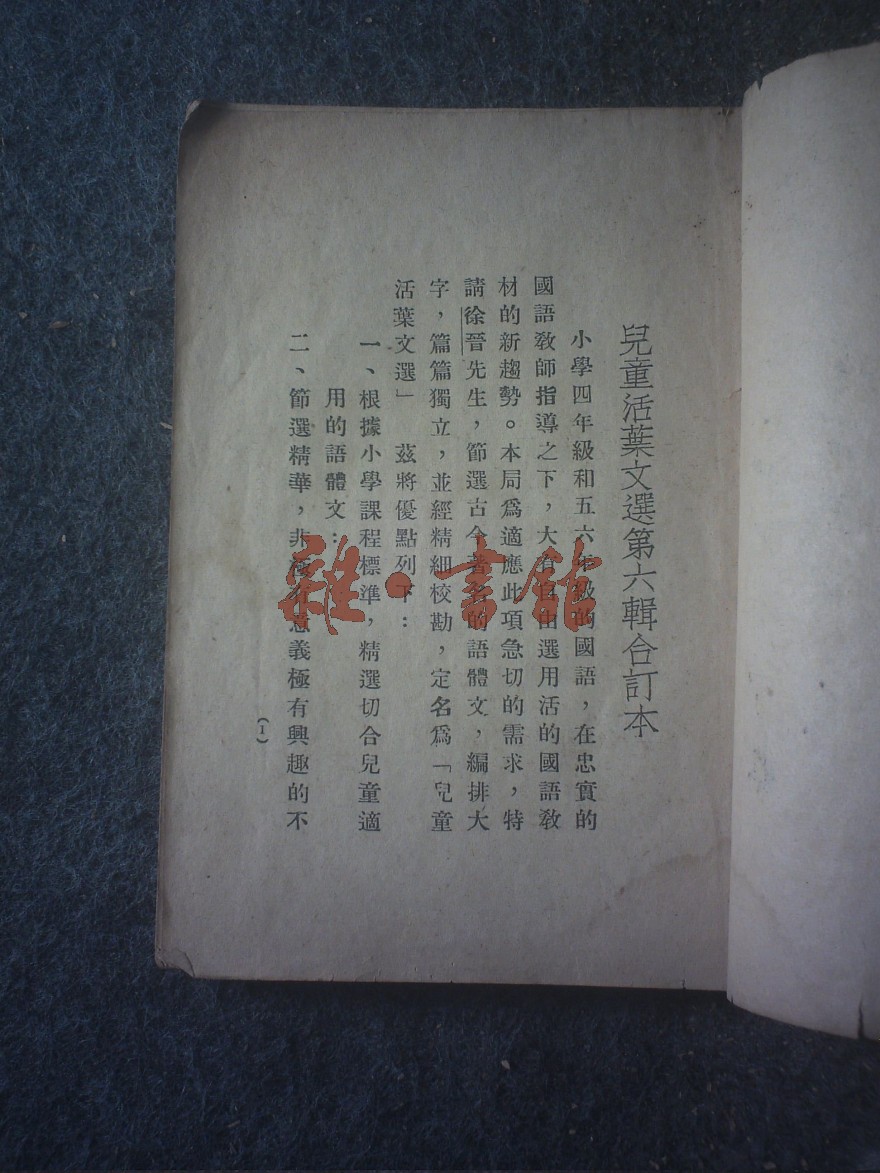 兒童活葉文選第六輯合訂本
小學四年級和五六年級的國語，在忠實的
國語教師指導之下，大有自由選用活的國語教
材的新趨勢。本局爲適應此項急切的需求，特
請徐晉先生，節選古今著名的語體文，編排大
字，篇篇獨立，並經精細校勘，定名爲「兒童
活葉文選」　茲將優點列下：
一、根據小學課程標準，精選切合兒童適
用的語體文：
二、節選精華，非極有意義極有興趣的不
(1)
雜·書館